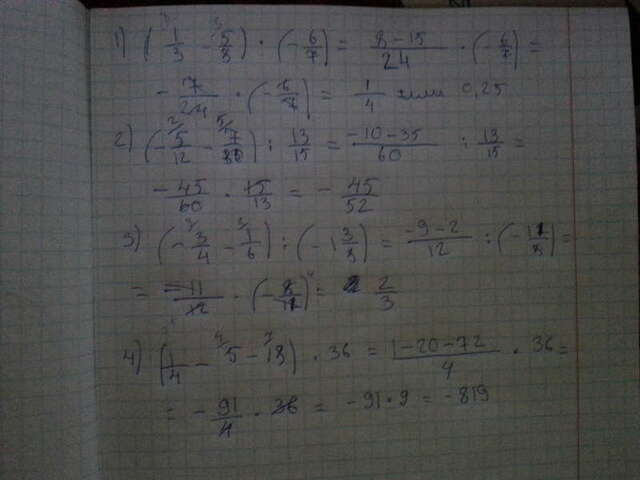 1) (1/3 - 5/8) · (-6/7) = 8-15/24 · (-6/7) =
-7/24 · (-6/7) = 1/4 или 0,25
2) (-5/12 - 7/) : 13/15 = -10-35/60 : 13/15 =
-45/60 · 15/13 = - 45/52
3) (-3/4 - 1/6) : (-1 3/8) = -9-2/12 : (-11/8) =
= -11/12 · (-8/11) = 2/3
4) (1/4 - 5 - 18) · 36 = 1-20-72/4 · 36 =
= - 91/4 · 36 = -91 · 9 = -819